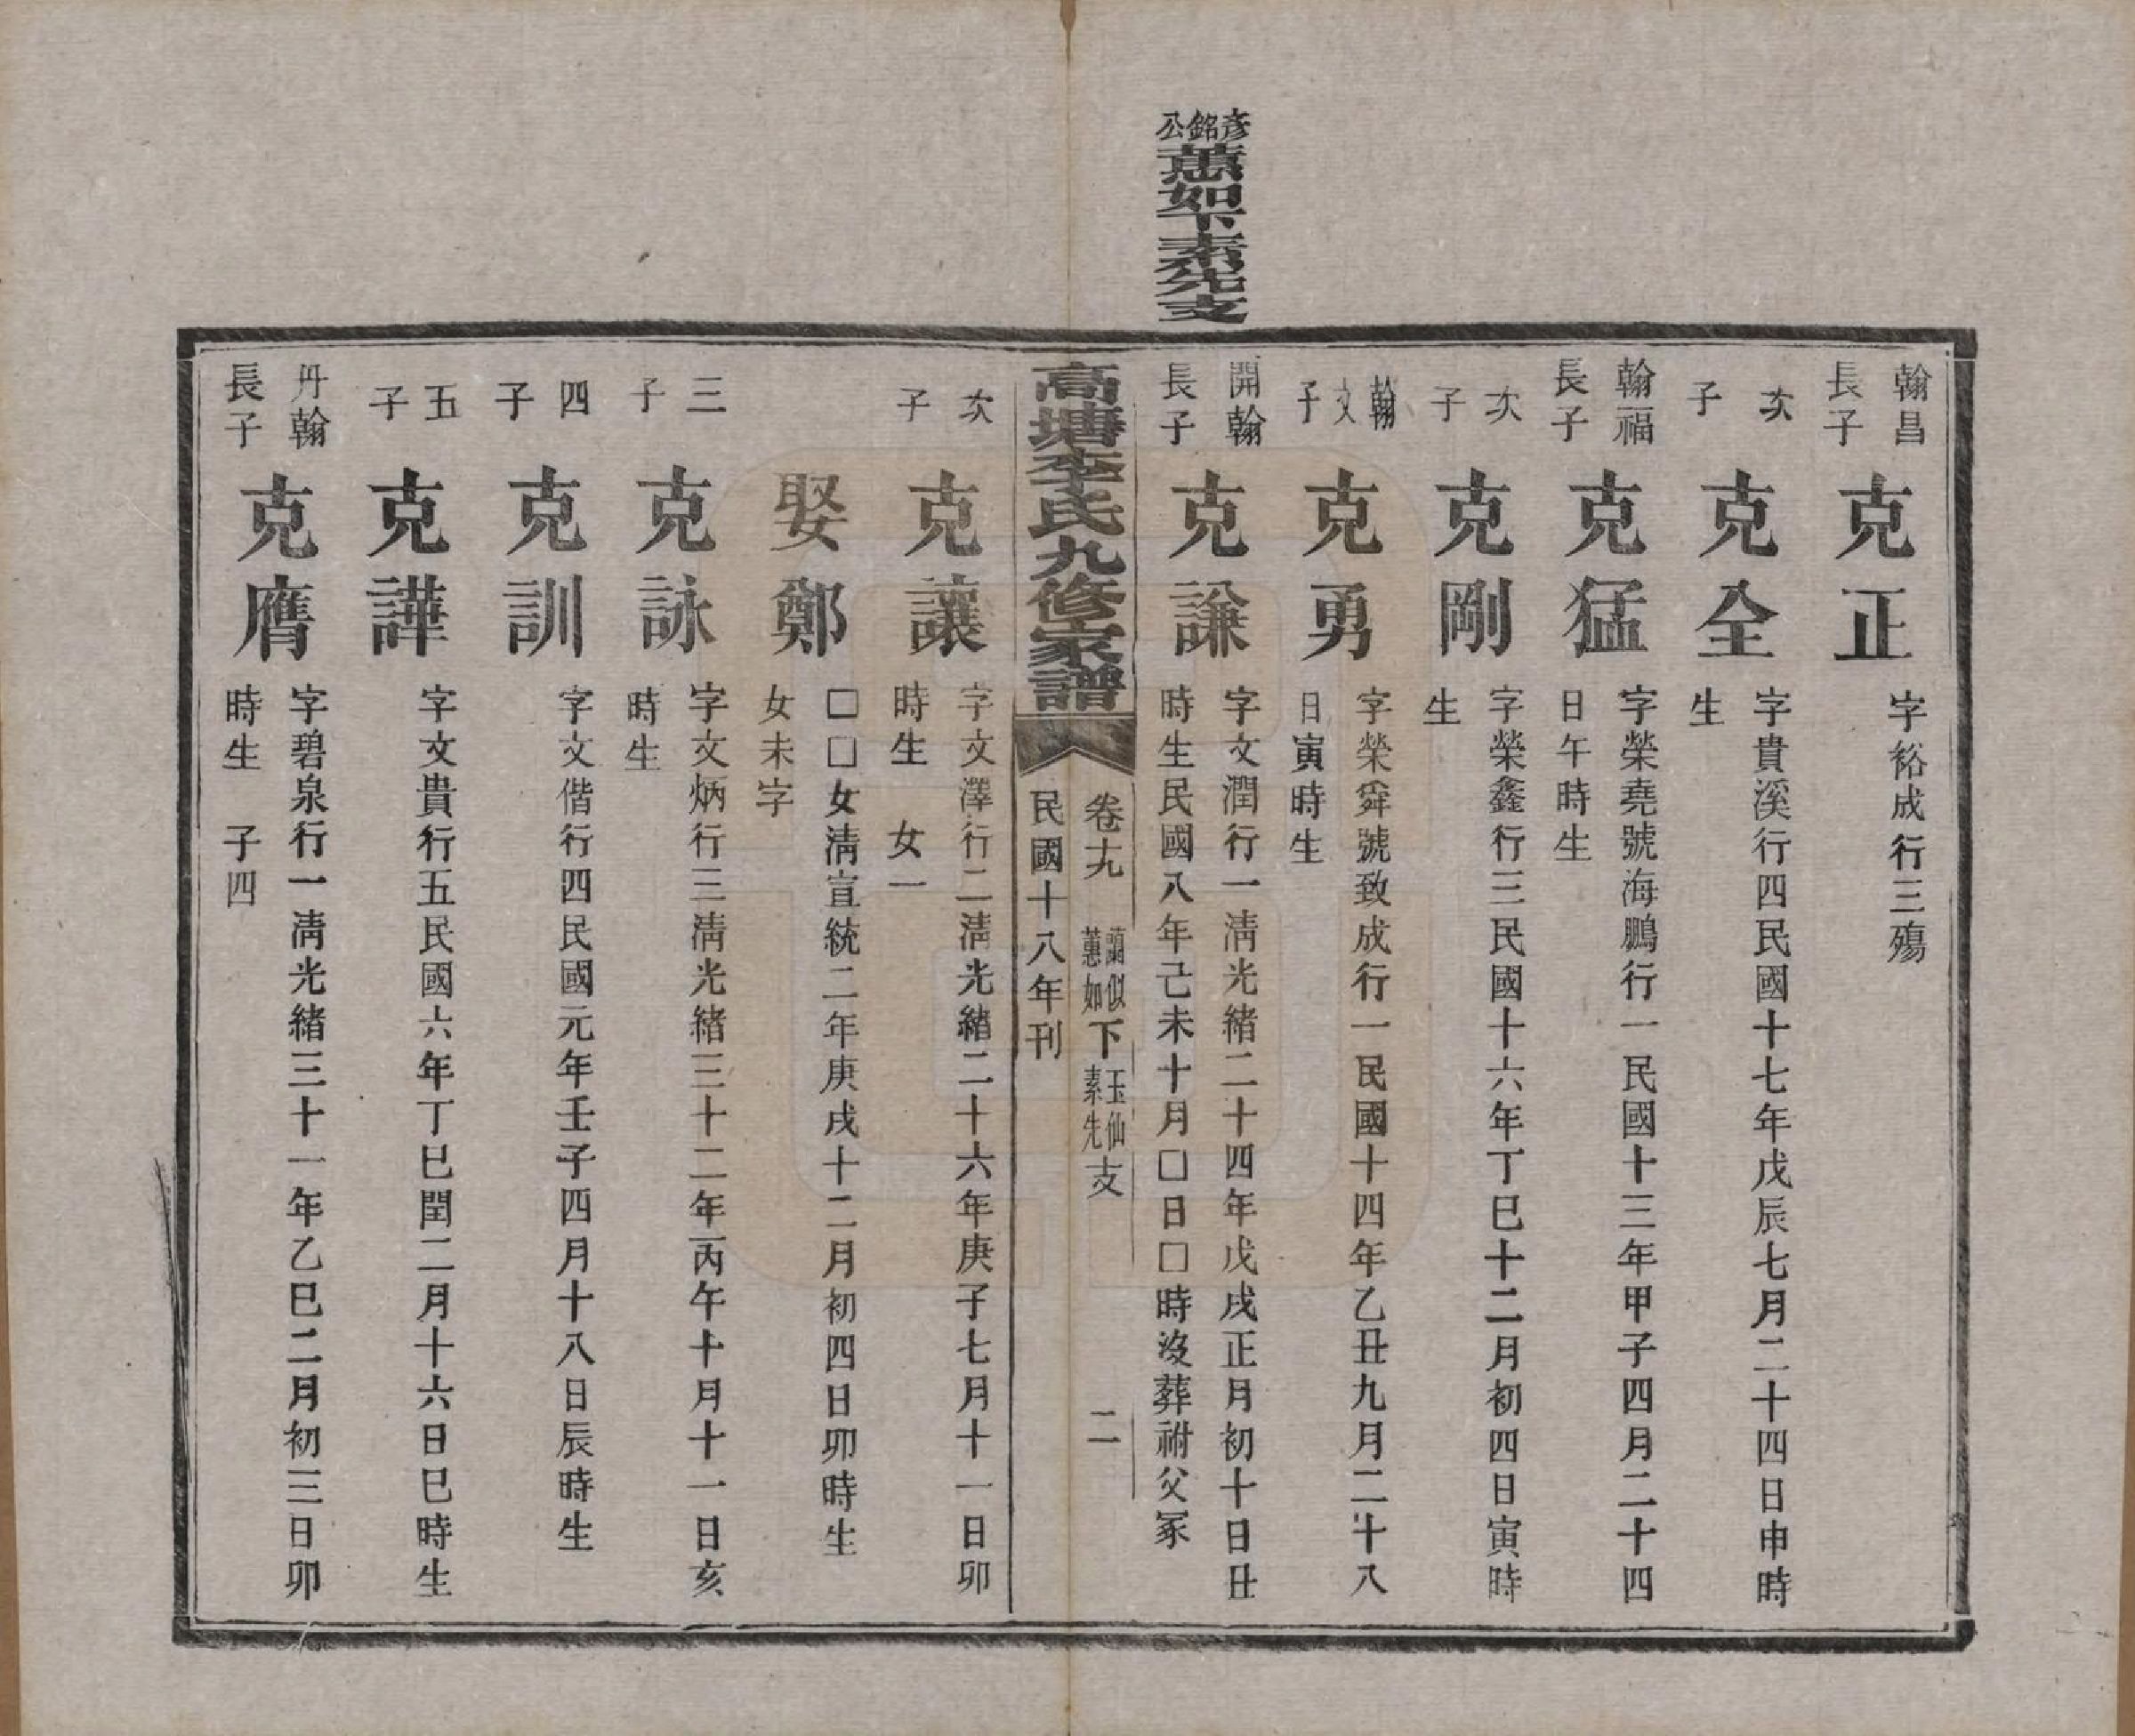 彥銘公蕙如下素先支
翰昌長子
克正
字裕成行三殤
次子
克全
字貴溪行四民國十七年戊辰七月二十四日申時
生
翰福長子
克猛
字榮堯號海鵬行一民國十三年甲子四月二十四
日午時生
次子
克剛
字榮鑫行三民國十六年丁巳十二月初四日寅時
生
翰文子
克勇
字榮舜號致成行一民國十四年乙丑九月二十八
日寅時生
開翰長子
克謙
字文潤行一淸光緒二十四年戊戌正月初十日丑
時生民國八年己未十月□日□時沒葬祔父冢
高塘李氏九修家譜
卷十九 蘭似蕙如下玉仙素先支 二
民國十八年刊
次子
克讓
字文澤行二淸光緒二十六年庚子七月十一日卯
時生 女一
娶鄭
□□女淸宣統二年庚戌十二月初四日卯時生
女未字
三子
克詠
字文炳行三淸光緒三十二年丙午十月十一日亥
時生
四子
克訓
字文偕行四民國元年壬子四月十八日辰時生
五子
克譁
字文貴行五民國六年丁巳閏二月十六日巳時生
丹翰長子
克膺
字碧泉行一淸光緒三十一年乙巳二月初三日卯
時生 子四